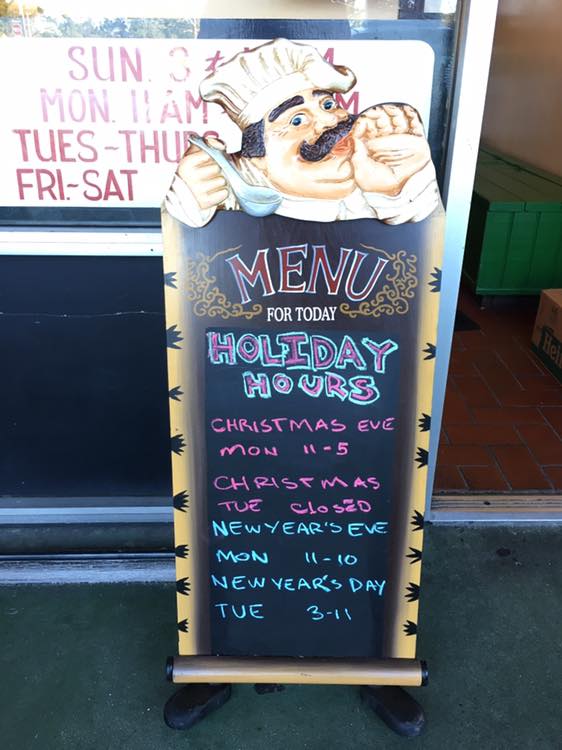 SUN. 3
MON. 11 AM
TUES-THU
FRI-SAT
MENU
FOR TODAY
HOLIDAY
HOURS
CHRISTMAS EVE
MON 11-5
CHRISTMAS
TUE CLOSED
NEW YEAR'S EVE
MON 11-10
NEW YEAR'S DAY
TUE 3-11
Hei